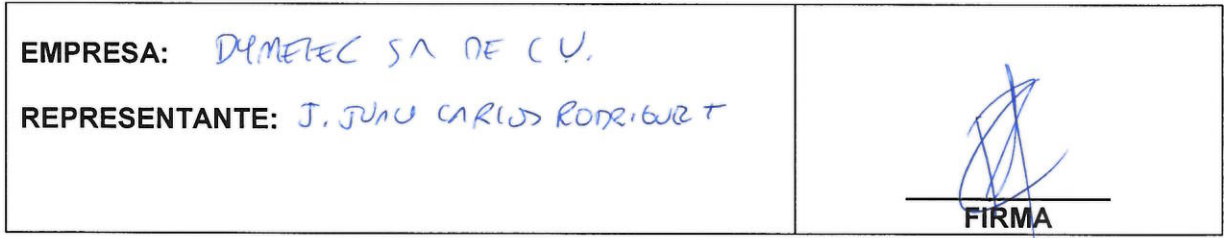 EMPRESA: DYMETEC SA DE CV.
REPRESENTANTE: J. JUAN CARLOS RODRIGUEZ T
FIRMA